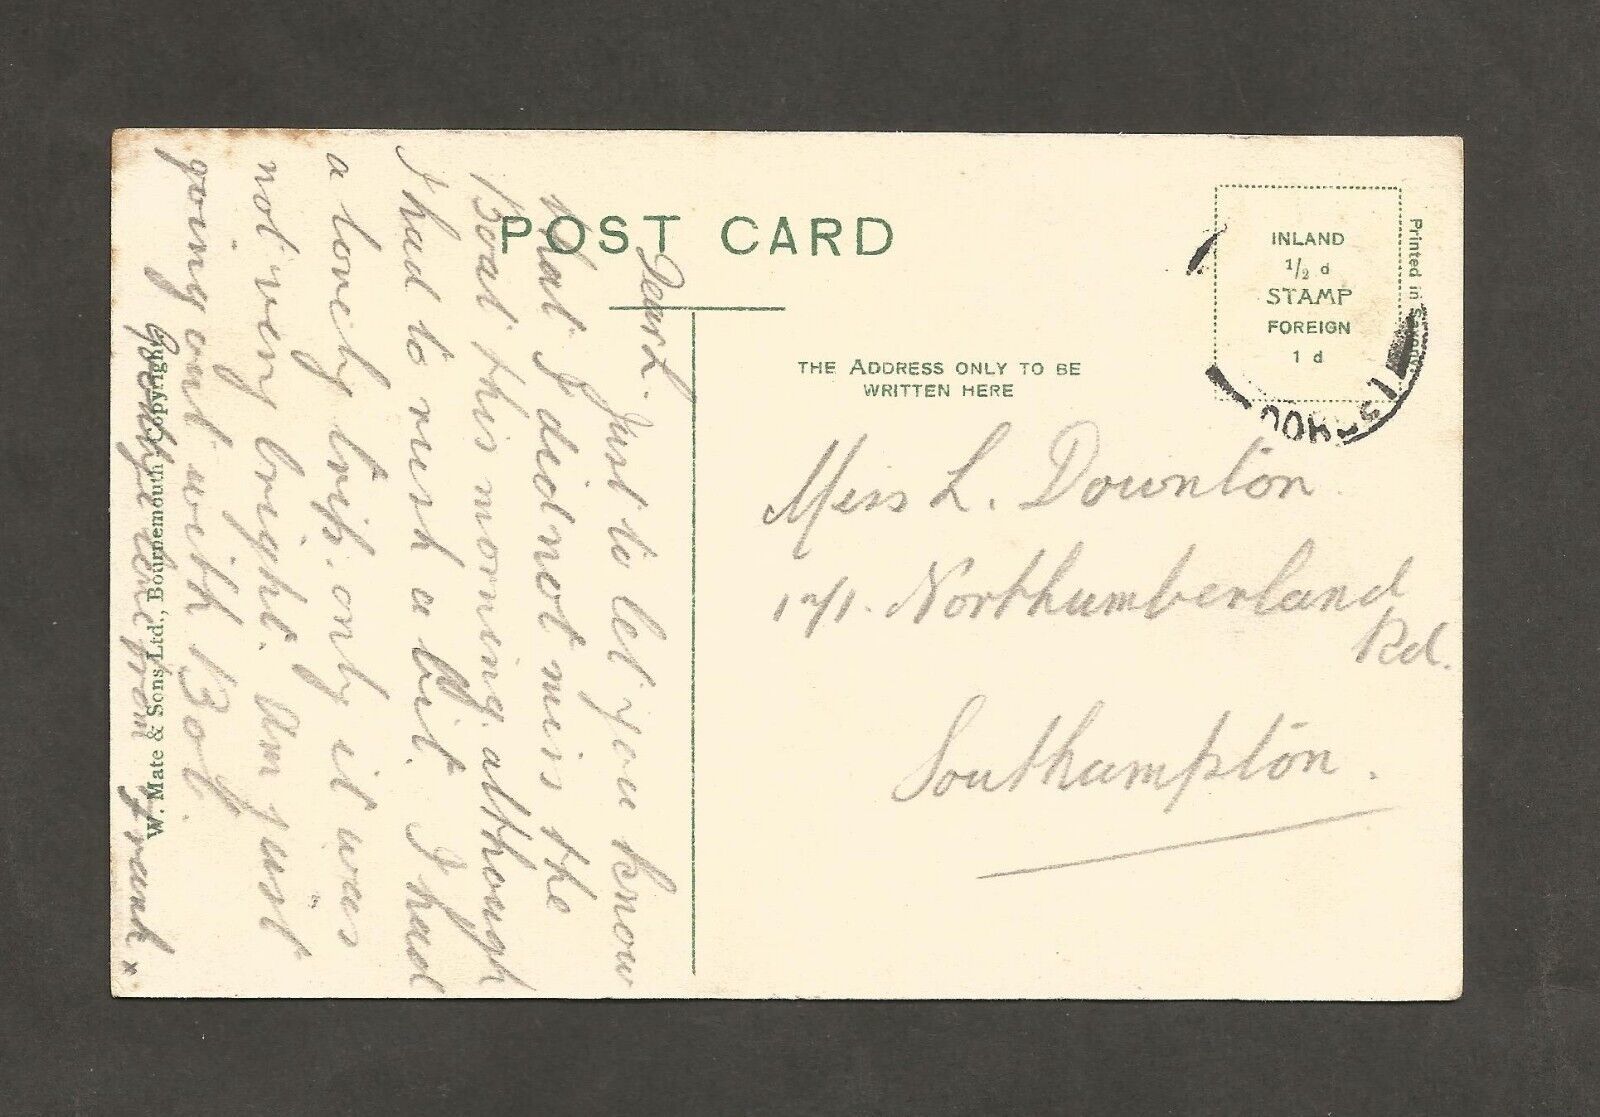 POST CARD
INLAND
1/2 d
STAMP
FOREIGN
1 d
Printed in Saxony
THE ADDRESS ONLY TO BE
WRITTEN HERE
Miss L. Downton
Northumberland
Rd.
Southampton.
Dear L. Just to let you know
that I did not miss the
Boat this morning although
I had to rush a bit. I had
a lovely trip. only it was
not very bright. Am just
going out with Bob.
Goodbye love from Frank. x
W. Mate & Sons Ltd., Bournemouth Copyright